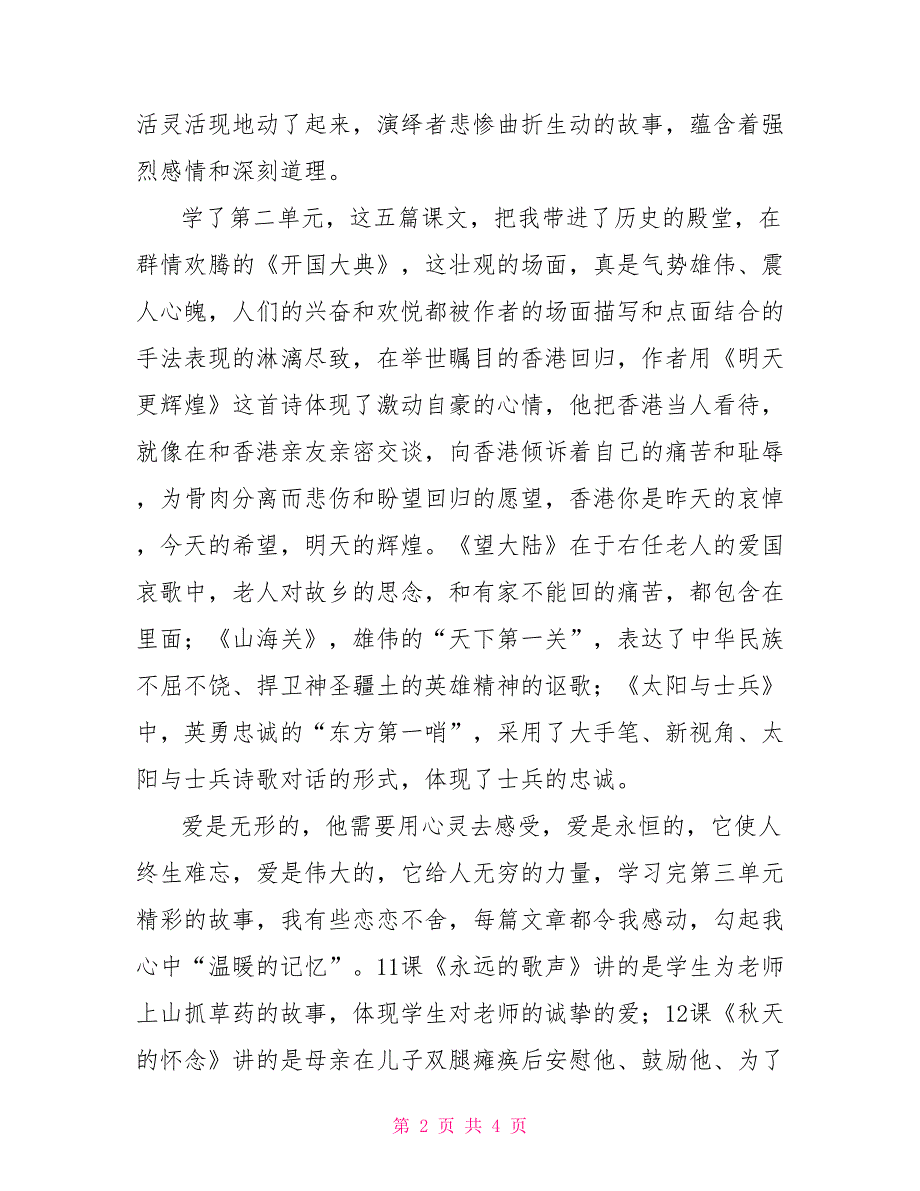 活灵活现地动了起来，演绎者悲惨曲折生动的故事，蕴含着强
烈感情和深刻道理。
学了第二单元，这五篇课文，把我带进了历史的殿堂，在
群情欢腾的《开国大典》，这壮观的场面，真是气势雄伟、震
人心魄，人们的兴奋和欢悦都被作者的场面描写和点面结合的
手法表现的淋漓尽致，在举世瞩目的香港回归，作者用《明天
更辉煌》这首诗体现了激动自豪的心情，他把香港当人看待，
就像在和香港亲友亲密交谈，向香港倾诉着自己的痛苦和耻辱
，为骨肉分离而悲伤和盼望回归的愿望，香港你是昨天的哀悼
，今天的希望，明天的辉煌。《望大陆》在于右任老人的爱国
哀歌中，老人对故乡的思念，和有家不能回的痛苦，都包含在
里面；《山海关》，雄伟的“天下第一关”，表达了中华民族
不屈不饶、捍卫神圣疆土的英雄精神的讴歌；《太阳与士兵》
中，英勇忠诚的“东方第一哨”，采用了大手笔、新视角、太
阳与士兵诗歌对话的形式，体现了士兵的忠诚。
爱是无形的，他需要用心灵去感受，爱是永恒的，它使人
终生难忘，爱是伟大的，它给人无穷的力量，学习完第三单元
精彩的故事，我有些恋恋不舍，每篇文章都令我感动，勾起我
心中“温暖的记忆”。11课《永远的歌声》讲的是学生为老师
上山抓草药的故事，体现学生对老师的诚挚的爱；12课《秋天
的怀念》讲的是母亲在儿子双腿瘫痪后安慰他、鼓励他、为了
第 2 页 共 4 页